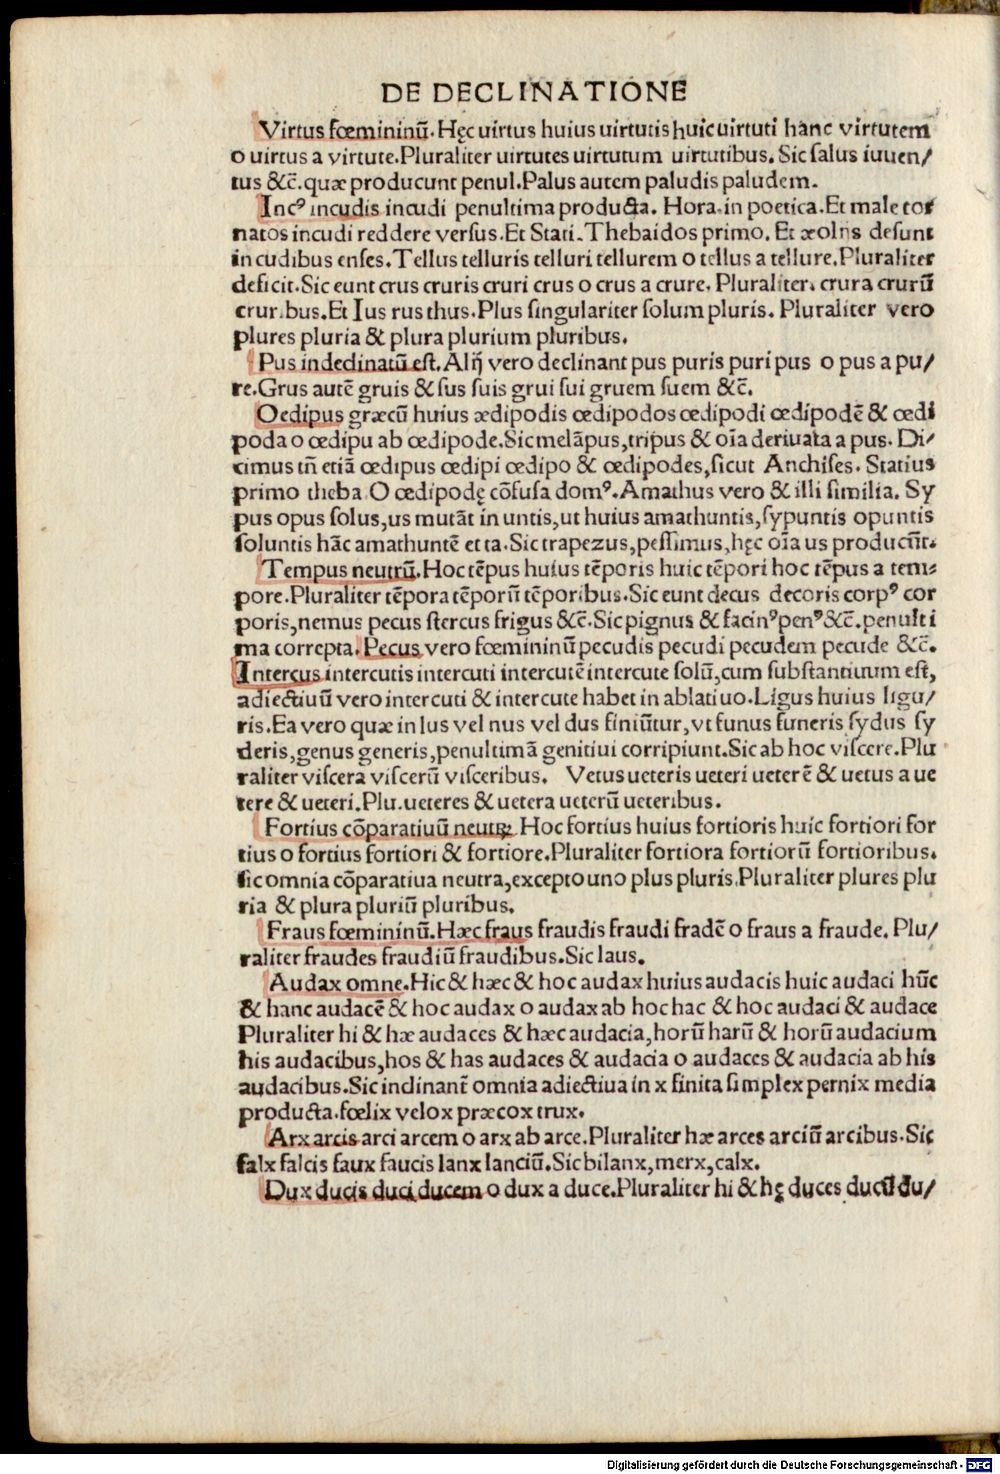 DE DECLINATIONE
Virtus fœmininū. Hęc uirtus huius uirtutis huic uirtuti hanc virtutem
o uirtus a virtute. Pluraliter uirtutes uirtutum uirtutibus. Sic salus iuuen/
tus &c̄. quæ producunt penul. Palus autem paludis paludem.
Incꝰ incudis incudi penultima producta. Hora. in poetica. Et male tor
natos incudi reddere versus. Et Stati. Thebaidos primo. Et æolns desunt
incudibus enses. Tellus telluris telluri tellurem o tellus a tellure. Pluraliter
deficit. Sic eunt crus cruris cruri crus o crus a crure. Pluraliter. crura crurū
cruribus. Et Ius rus thus. Plus singulariter solum pluris. Pluraliter vero
plures pluria & plura plurium pluribus.
Pus indeclinatū est. Alij vero declinant pus puris puri pus o pus a pu/
re. Grus autē gruis & sus suis grui sui gruem suem &c̄.
Oedipus græcū huius ædipodis œdipodos œdipodi œdipodē & œdi
poda o œdipu ab œdipode. Sic melāpus, tripus & oīa deriuata a pus. Di/
cimus tn̄ etiā œdipus œdipi œdipo & œdipodes, sicut Anchises. Statius
primo theba O œdipodę cōfusa domꝰ. Amathus vero & illi similia. Sy
pus opus solus, us mutāt in untis, ut huius amathuntis, sypuntis opuntis
soluntis hāc amathuntē et ta. Sic trapezus, pessimus, hęc oīa us producūt.
Tempus neutrū. Hoc tēpus huius tēporis huic tēpori hoc tēpus a tem-
pore. Pluraliter tēpora tēporū tēporibus. Sic eunt decus decoris corpꝰ cor
poris, nemus pecus stercus frigus &c̄. Sic pignus & facinꝰ penꝰ &c̄. penulti
ma correpta. Pecus vero fœmininū pecudis pecudi pecudem pecude &c̄.
Intercus intercutis intercuti intercutē intercute solū, cum substantiuum est,
adiectiuū vero intercuti & intercute habet in ablatiuo. Ligus huius ligu/
ris. Ea vero quæ in lus vel nus vel dus finiūtur, vt funus funeris sydus sy
deris, genus generis, penultimā genitiui corripiunt. Sic ab hoc viscere. Plu
raliter viscera viscerū visceribus. Vetus ueteris ueteri ueterē & uetus a ue
tere & ueteri. Plu. ueteres & uetera ueterū ueteribus.
Fortius cōparatiuū neutꝝ. Hoc fortius huius fortioris huic fortiori for
tius o fortius fortiori & fortiore. Pluraliter fortiora fortiorū fortioribus.
sic omnia cōparatiua neutra, excepto uno plus pluris. Pluraliter plures plu
ria & plura pluriū pluribus.
Fraus fœmininū. Hæc fraus fraudis fraudi fradē o fraus a fraude. Plu/
raliter fraudes fraudiū fraudibus. Sic laus.
Audax omne. Hic & hæc & hoc audax huius audacis huic audaci hūc
& hanc audacē & hoc audax o audax ab hoc hac & hoc audaci & audace
Pluraliter hi & hæ audaces & hæc audacia, horū harū & horū audacium
his audacibus, hos & has audaces & audacia o audaces & audacia ab his
audacibus. Sic inclinant̄ omnia adiectiua in x finita simplex pernix media
producta. fœlix velox præcox trux.
Arx arcis arci arcem o arx ab arce. Pluraliter hæ arces arciū arcibus. Sic
falx falcis faux faucis lanx lanciū. Sic bilanx, merx, calx.
Dux ducis duci ducem o dux a duce. Pluraliter hi & hę duces ducū du/
Digitalisierung gefördert durch die Deutsche Forschungsgemeinschaft - DFG